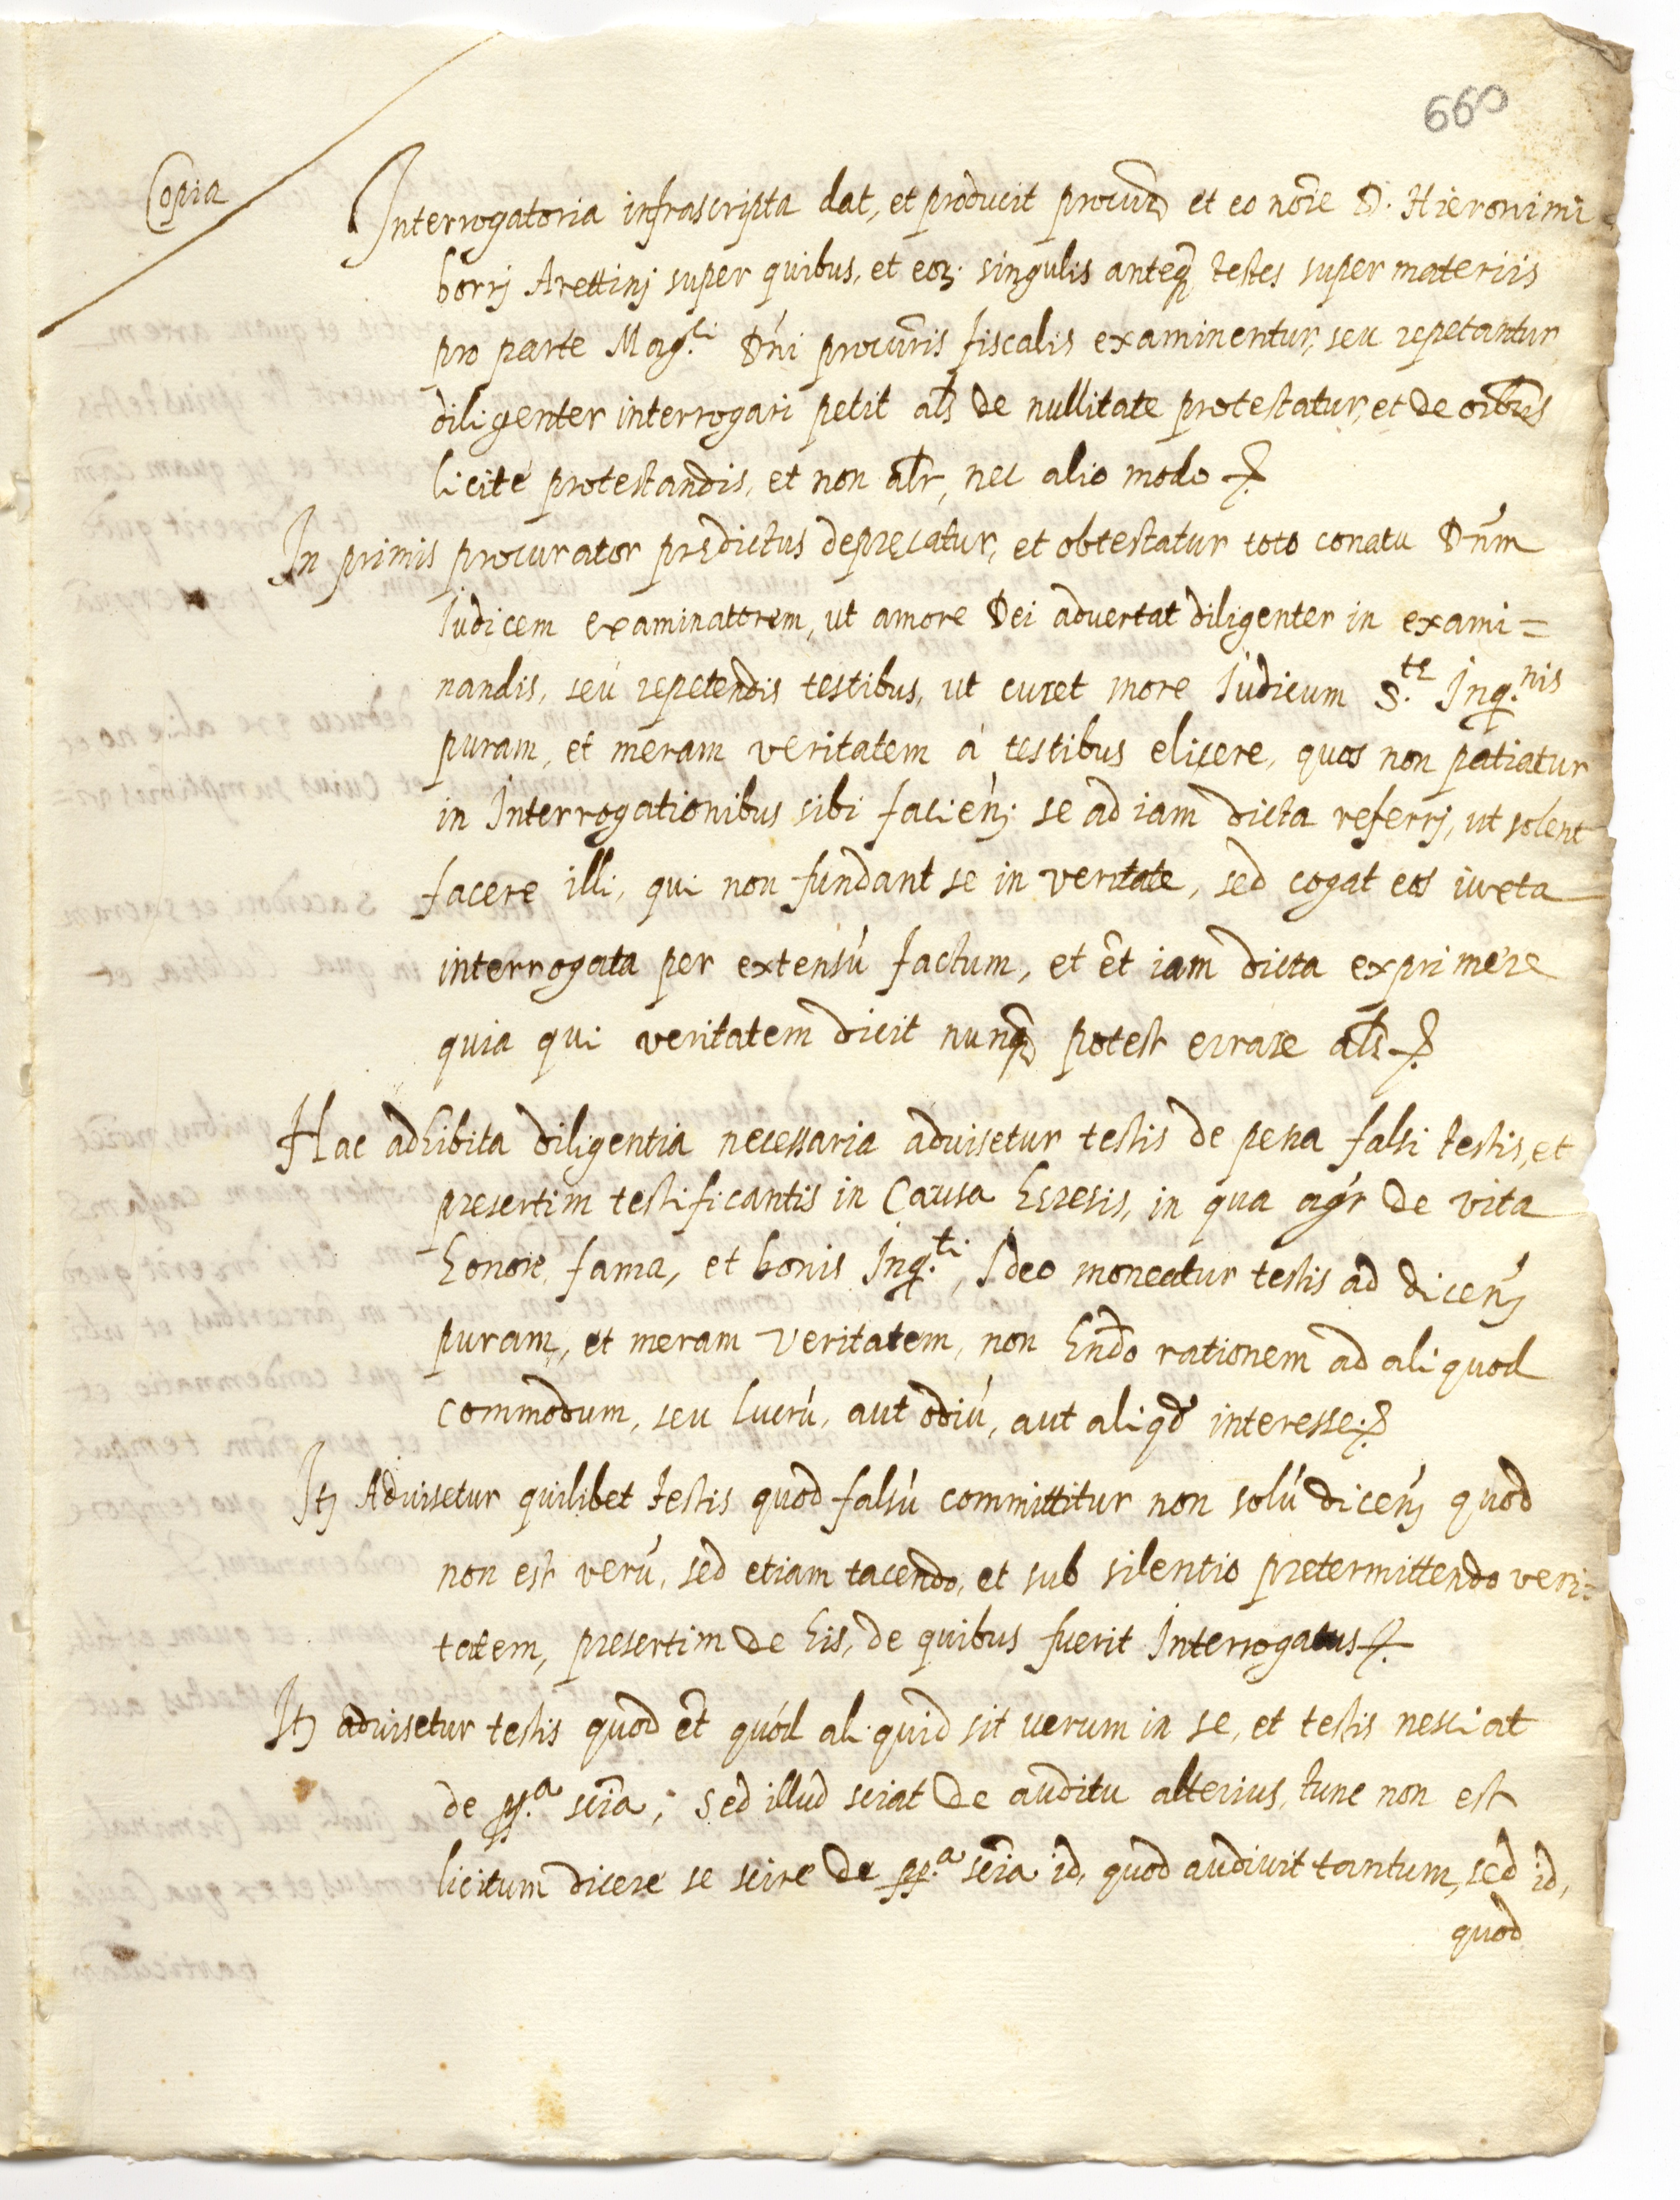 660
Copia
Interrogatoria infrascripta dat, et producit procur~ et eo nõie D. Hieronimi
borrj Arettinj super quibus, et eoꝝ singulis anteq̃ testes super materiis
pro parte Mag.ci Dñi procur̃is fiscalis examinentur, seu repetantur
diligenter interrogari petit al̃s de nullitate protestatur, et de oĩbus
licité protestandis, et non al̃r, nec alio modo
In primis procurator predictus deprecatur, et obtestatur toto conatu Dñm
Iudicem examinatorem, ut amore Dei advertat diligenter in exami=
nandis, seu repetendis testibus, ut curet more Iudicum S.te Inq.nis
puram, et meram veritatem á testibus elicere, quos non patiatur
in Interrogationibus sibi facieñ; se ad iam dicta referrj, ut solent
facere illi, qui non fundant se in veritate, sed cogat eos iuxta
interrogata per extensũ factum, et ẽt iam dicta exprimere
quia qui veritatem dicit nunq̃ potest errare al̃s
Hac adhibita diligentia necessaria advisetur testis de pena falsi testis, et
presertim testificantis in Causa heresis, in qua agr̃ de vita
honore, fama, et bonis Inq.ti, Ideo moneatur testis ad diceñ
puram, et meram veritatem, non hñdo rationem ad aliquod
commodum, seu lucrũ, aut odiũ, aut aliqd̃ interesse.
Itꝫ Advisetur quilibet testis quod falsũ committitur non solũ diceñ quod
non est verũ, sed etiam tacendo, et sub silentio pretermittendo veri=
tatem, presertim de his, de quibus fuerit Interrogatus
Itꝫ advisetur testis quod ẽt quód aliquid sit verum in se, et testis nesciat
de pp.a scĩa, sed illud sciat de auditu alterius, tunc non est
licitum dicere se scire de pp.a scĩa id, quod audivit tantum, sed id,
quod